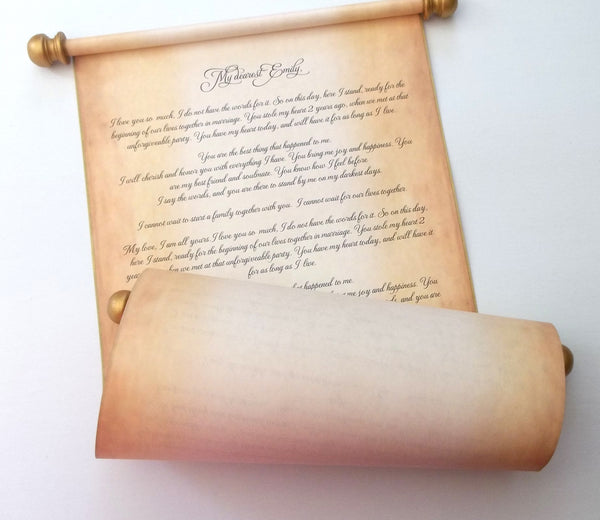 My dearest Emily,
I love you so much, I do not have the words for it. So on this day, here I stand, ready for the
beginning of our lives together in marriage. You stole my heart 2 years ago, when we met at that
unforgiveable party. You have my heart today, and will have it for as long as I live.
You are the best thing that happened to me.
I will cherish and honor you with everything I have. You bring me joy and happiness. You
are my best friend and soulmate. You know how I feel before
I say the words, and you are there to stand by me on my darkest days.
I cannot wait to start a family together with you. I cannot wait for our lives together.
My love, I am all yours. I love you so much, I do not have the words for it. So on this day,
here I stand, ready for the beginning of our lives together in marriage. You stole my heart 2
when we met at that unforgiveable party. You have my heart today, and will have it
for as long as I live.
happened to me.
me joy and happiness. You
and you are